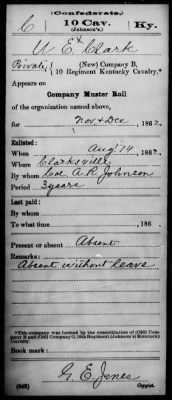 (Confederate.)
C 10 Cav. Ky.
(Johnson's.)
W. E. Clark
Private, (New) Company B,
10 Regiment Kentucky Cavalry.*
Appears on
Company Muster Roll
of the organization named above,
for Nov & Dec, 1862.
Enlisted:
When Aug 14, 1862.
Where Clarksville
By whom Col. A. R. Johnson
Period 3 years
Last paid:
By whom
To what time , 186 .
Present or absent Absent
Remarks:
Absent without leave
*This company was formed by the consolidation of (Old) Company B and (Old) Company G, 10th (Johnson's) Kentucky Cavalry.
Book mark:
G. E. Jones
(642) Copyist.